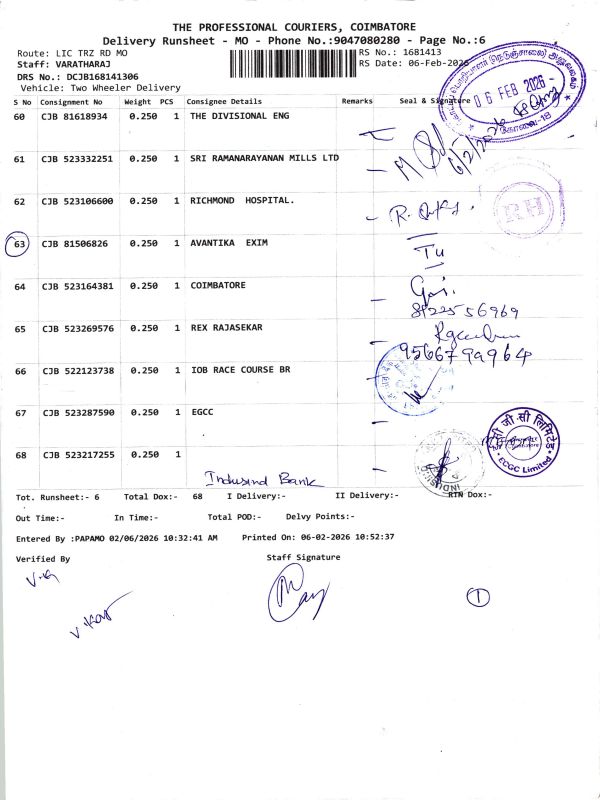 THE PROFESSIONAL COURIERS, COIMBATORE
Delivery Runsheet - MO - Phone No.:9047080280 - Page No.:6
Route: LIC TRZ RD MO
RS No.: 1681413
Staff: VARATHARAJ
RS Date: 06-Feb-2026
DRS No.: DCJB168141306
Vehicle: Two Wheeler Delivery
06 FEB 2026
கோவை-18
S No Consignment No Weight PCS Consignee Details Remarks Seal & Signature
60 CJB 81618934 0.250 1 THE DIVISIONAL ENG
6/2/2026
61 CJB 523332251 0.250 1 SRI RAMANARAYANAN MILLS LTD
62 CJB 523106600 0.250 1 RICHMOND HOSPITAL.
RH
63 CJB 81506826 0.250 1 AVANTIKA EXIM
64 CJB 523164381 0.250 1 COIMBATORE
65 CJB 523269576 0.250 1 REX RAJASEKAR
66 CJB 522123738 0.250 1 IOB RACE COURSE BR
67 CJB 523287590 0.250 1 EGCC
ECGC Limited
68 CJB 523217255 0.250 1
Indusind Bank
Tot. Runsheet:- 6 Total Dox:- 68 I Delivery:- II Delivery:- RTN Dox:-
Out Time:- In Time:- Total POD:- Delvy Points:-
Entered By :PAPAMO 02/06/2026 10:32:41 AM Printed On: 06-02-2026 10:52:37
Verified By Staff Signature
1